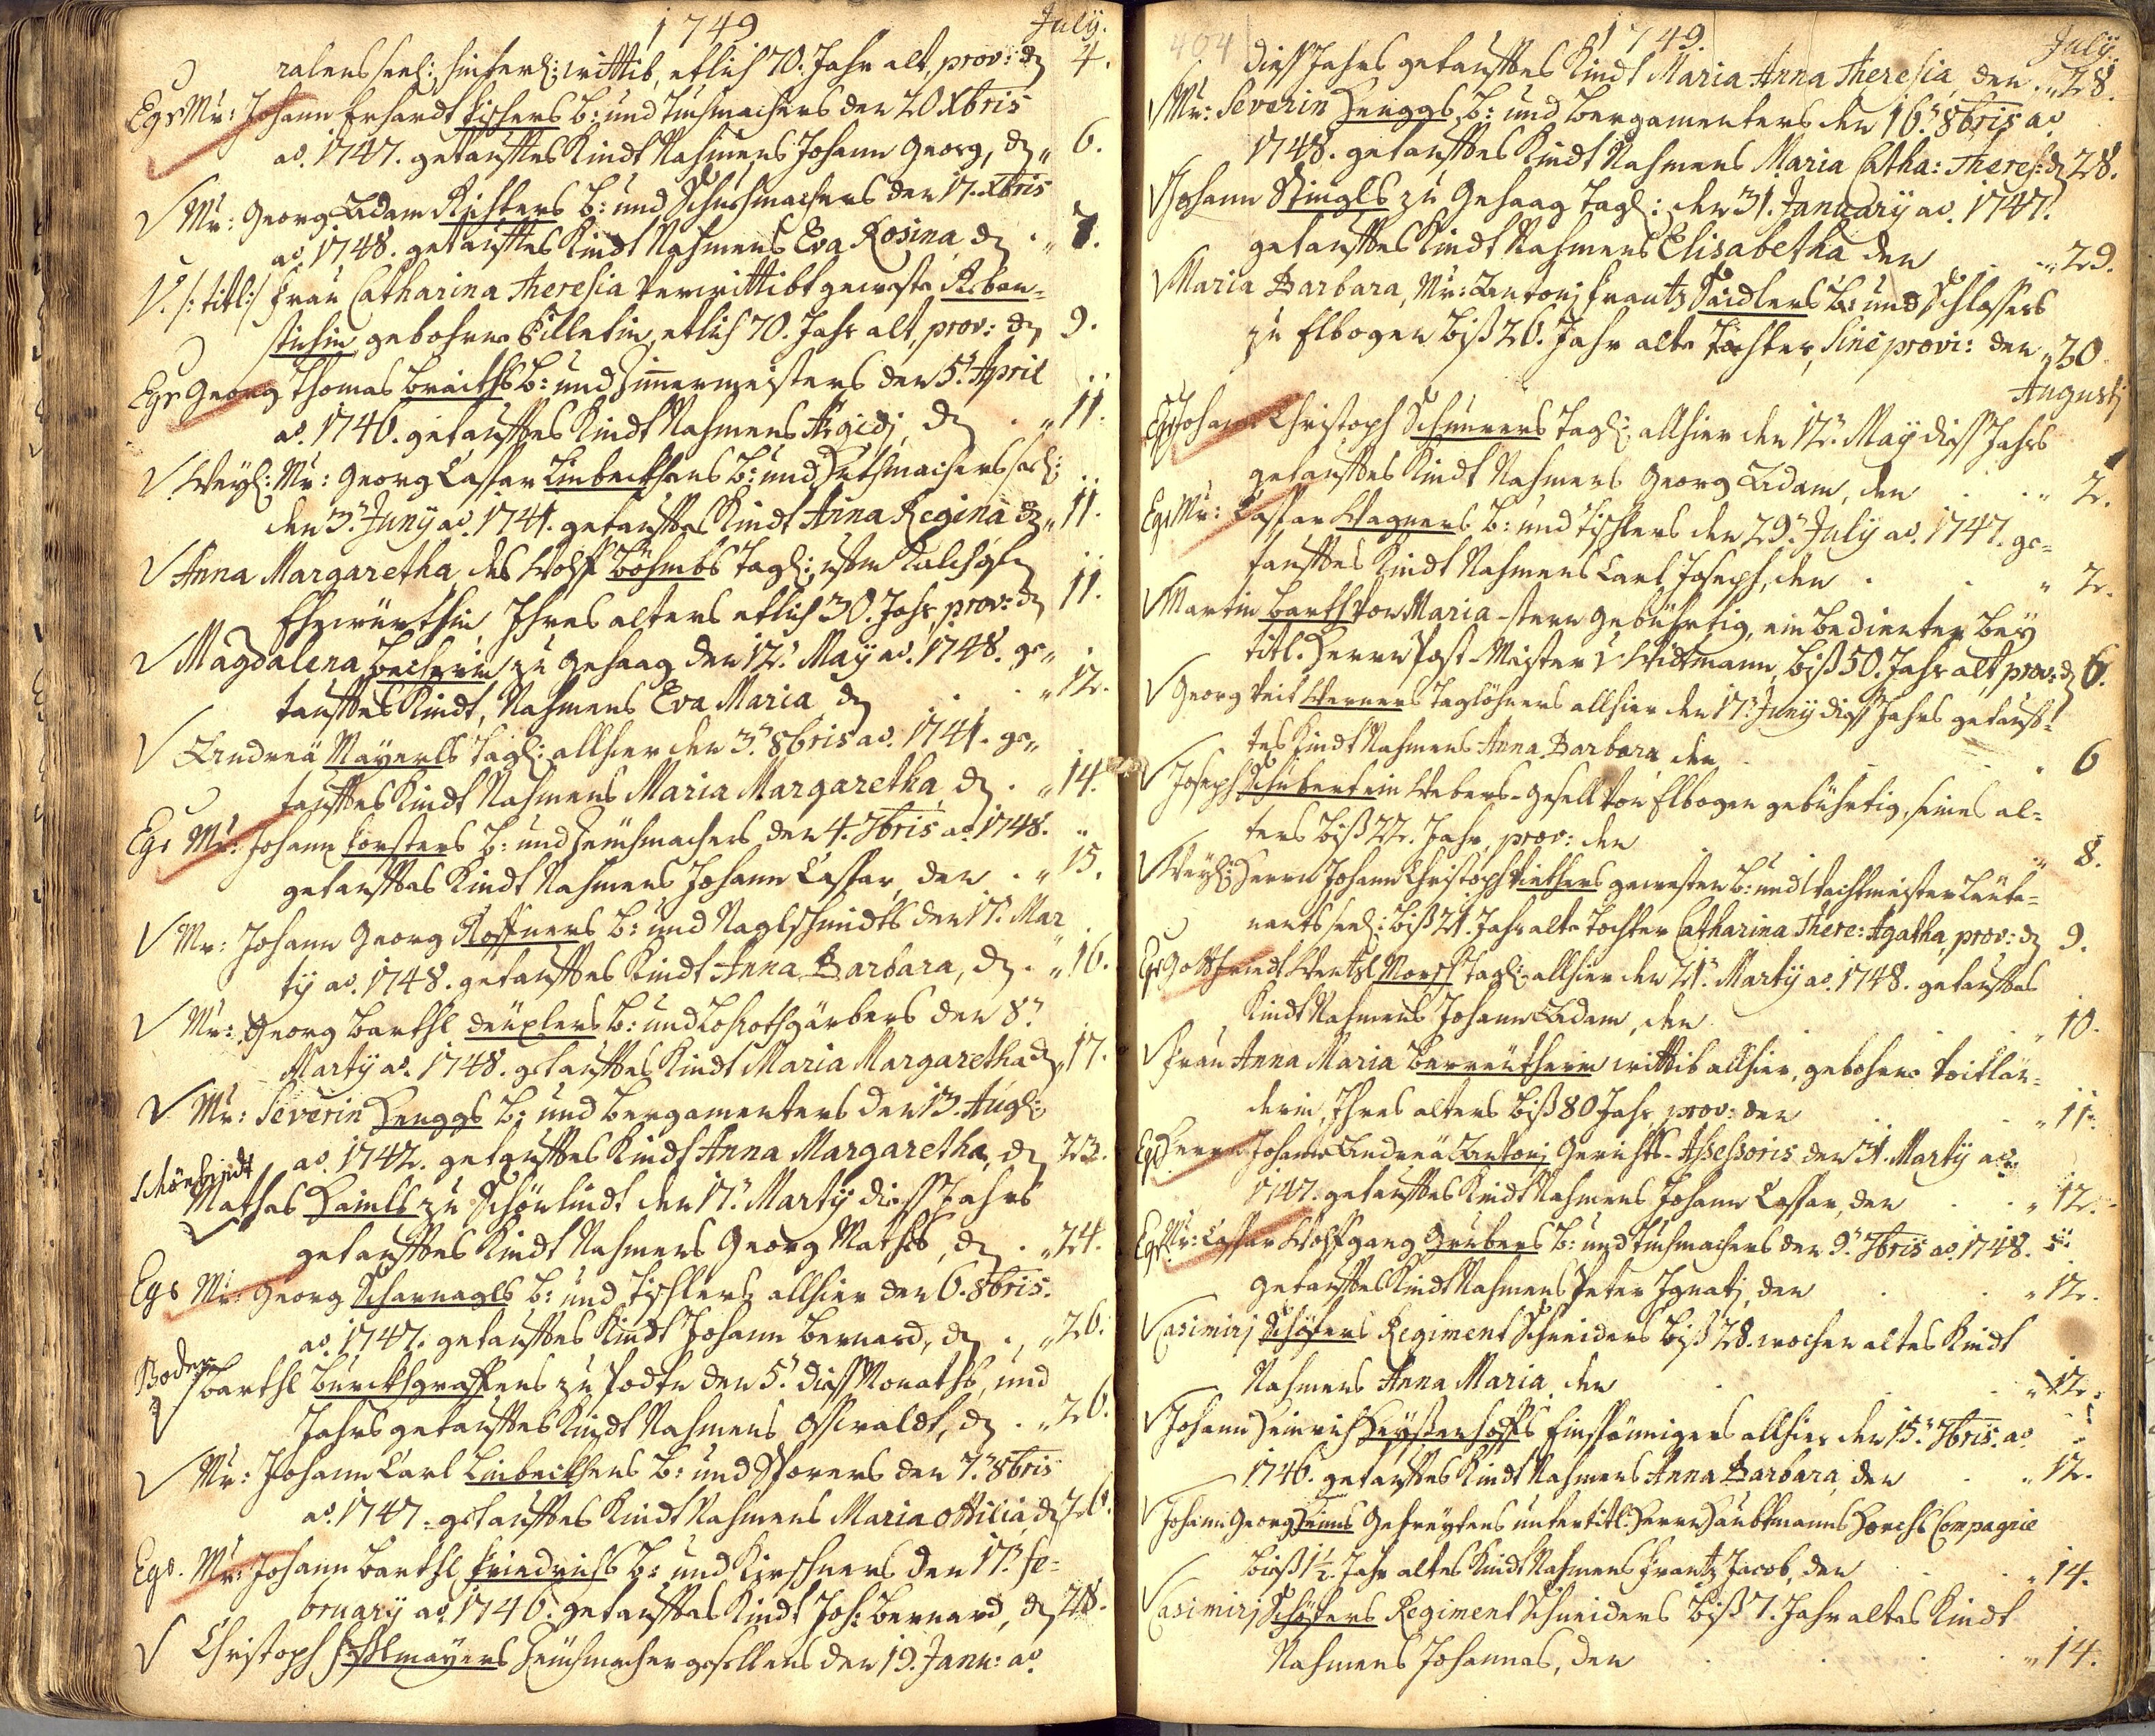 1749 July.
ralens seel: hinterl: wittib, etlich 70. Jahr alt, prov: den 4.
Egr Mr: Johann Erhardt Fischers B: und Tuchmachers den 20 Xbris
ao. 1747. getaufftes Kindt Nahmens Johann Georg, den „ 6.
Mr: Georg Adam Richters B: und Schuhmachers den 17. Xbris
ao. 1748. getaufftes Kindt Nahmens Eva Rosina, den . „ 7.
V. /: titl:/ Frau Catharina Theresia verwittibt geweste
gebohrne etlich 70. Jahr alt, prov: den 9.
Egr Georg Thomas B: und Zimmermeisters den 5. April
ao. 1746. getaufftes Kindt Nahmens Ægidj, den . „ 11.
Weyl: Mr: Georg Caspar Linbeckhens B: und Huthmachers seel:
den 3. Juny ao. 1741. getaufftes Kindt Anna Regina den „ 11.
Anna Margaretha des Wolff Böhmbs Tagl:
Ehewürthin Ihres alters etlich 30. Jahr, prov: den 11.
Magdalena Becherin zu Gehaag den 12. May ao. 1748. ge„
taufftes Kindt, Nahmens Eva Maria den . . „ 12.
Andreä Mayerls Tagl: allhier den 3. 8bris ao. 1741. ge„
taufftes Kindt Nahmens Maria Margaretha, den . „ 14.
Egr Mr: Johann Forsters B: und Zeuchmachers den 4. 7bris ao. 1748.
getaufftes Kindt Nahmens Johann Caspar, den . „ 15.
Mr: Johann Georg B: und Naglschmidts den 17. Mar
ty ao. 1748. getaufftes Kindt Anna Barbara, den . „ 16.
Mr: Georg Barthl B: und Lohrothgärbers den 8.
Marty ao. 1748. getaufftes Kindt Maria Margaretha den „ 17.
Mr: Severin Henggs B: und Bergamenters den 13. Aug:
ao. 1742. getaufftes Kindt Anna Margaretha, den 23.
Schönlindt
Mathes Haimls zu Schönlindt den 17. Marty diess Jahrs
getaufftes Kindt Nahmens Georg Mathes, den . „ 24.
Egr Mr: Georg Scharnagls B: und Tischlers allhier den 6. 8bris.
ao. 1747. getaufftes Kindt Johann Bernard, den . „ 26.
Boden
Barthl Burckhgraffens zu Poden den 5. diess Monaths, und
Jahrs getaufftes Kindt Nahmens Osswaldt, den . „ 26.
Mr: Johann Carl Linbeckhens B: und Sporers den 7. 8bris
ao. 1747. getaufftes Kindt Nahmens Maria Ottilia, den 26.
Egr. Mr: Johann Barthl Friedrichs B: und Kirschners den 17. Fe-
bruary ao. 1746. getaufftes Kindt Joh: Bernard, den 28.
Christoph Zeuchmachergesellens den 19. Janu: ao.
404 1749. July
diess Jahrs getaufftes Kindt Maria Anna Theresia, den . „ 28.
Mr: Severin Henggs B: und Bergamenters den 16. 8bris ao.
1748. getaufftes Kindt Nahmens Maria Catha: Theres: den 28.
Johann Stingls zu Gehaag Tagl: den 31. January ao. 1747.
getaufftes Kindt Nahmens Elisabetha den . „ 29.
Maria Barbara, Mr: Antonj Frantz Saidlers B: und Schlossers
zu Elbogen biß 26. Jahr alte Tochter, Sine provi: den „ 30
Augusti
Egr Johann Christoph Schurrers Tagl: allhier den 12. May diess Jahrs
getaufftes Kindt Nahmens Georg Adam, den . . „ 2.
Egr Mr: Caspar Wagners B: und Tischlers den 29. July ao. 1747. ge-
taufftes Kindt Nahmens Carl Joseph, den . . „ 2.
Martin Barth von Maria-stern gebührtig, ein bedienter bey
titl. Herrn Post-Meister Widtmann, biß 50. Jahr alt, prov: den 6.
Georg Veit Werners Taglöhners allhier den 17. Juny diess Jahrs getauff-
tes Kindt Nahmens Anna Barbara, den . . 6
Joseph Schubert ein Webers-Gesell von Elbogen gebührtig, seines al-
ters biß 22. Jahr, prov: den . . „ 8.
Weyl: Herrn Johann Christoph gewesten B: und Wachtmeister Leute-
nants seel: biß 21. Jahr alte Tochter Catharina There: Agatha, prov: den 9.
Egr Gottfriedt Wentzl Tagl: allhier den 21. Marty ao. 1748. getaufftes
Kindt Nahmens Johann Adam, den . . „ 10.
Frau Anna Maria Berreütherin wittib allhier, gebohrne Voitlän-
derin, Ihres alters biß 80 Jahr, prov: den . . „ 11.
Egr Herrn Johann Andreä Antonj Gerichts-Assessoris den 31. Marty ao
1747. getaufftes Kindt Nahmens Johann Caspar, den . . „ 12.
Egr Mr: Caspar Wolffgang Grubers B: und Tuchmachers den 9. 7bris ao. 1748.
getaufftes Kindt Nahmens Peter Ignatj, den . . „ 12.
Casimirj Schäfers Regiment Schneiders biß 28. wochen altes Kindt
Nahmens Anna Maria, den . . „ 12.
Johann Heinrich allhier den 15. 7bris. ao.
1746. getaufftes Kindt Nahmens Anna Barbara, den . „ 12.
Johann Georg Heims Gefreytens unter titl: Herrn Haubtmanns Compagnie
biß 1½. Jahr altes Kindt Nahmens Frantz Jacob, den . . „ 14.
Casimirj Schäfers Regiment Schneiders biß 7. Jahr altes Kindt
Nahmens Johannes, den . . . „ 14.